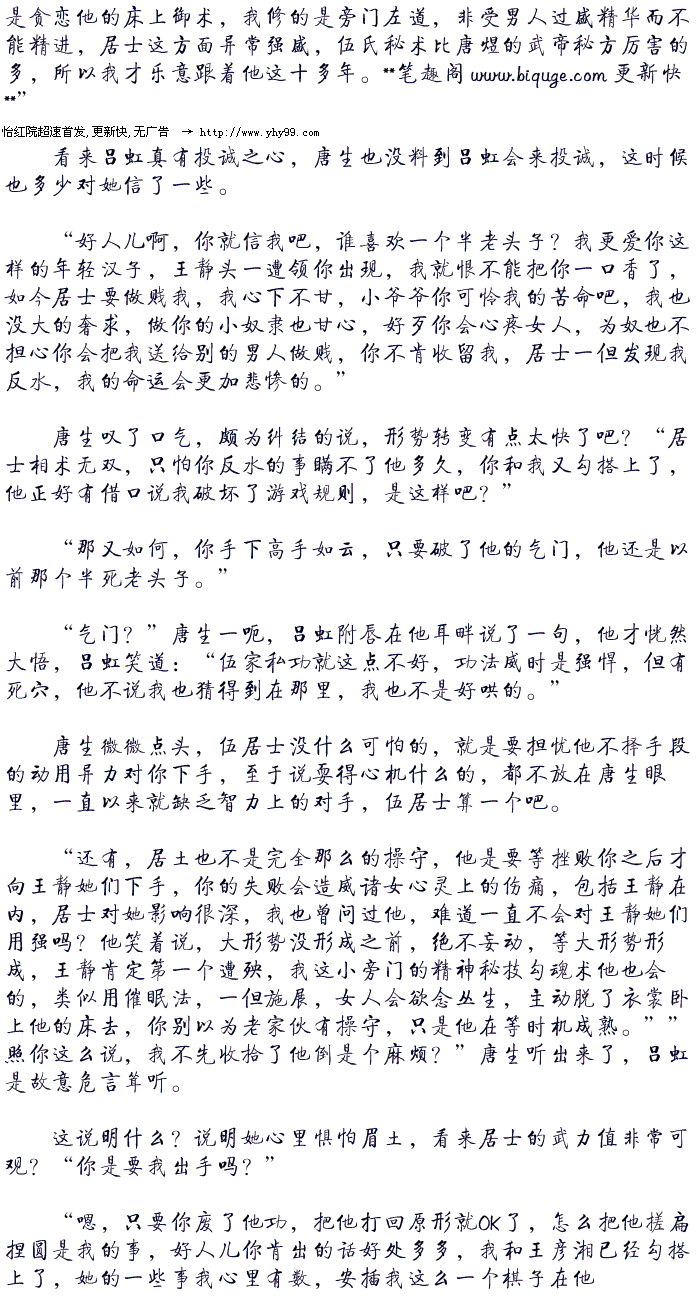 是贪恋他的床上御术，我修的是旁门左道，非受男人过盛精华而不
能精进，居士这方面异常强盛，伍氏秘术比唐煜的武帝秘方厉害的
多，所以我才乐意跟着他这十多年。**笔趣阁 www.biquge.com 更新快
**”
怡红院超速首发,更新快,无广告 → http://www.yhy99.com
看来吕虹真有投诚之心，唐生也没料到吕虹会来投诚，这时候
也多少对她信了一些。
“好人儿啊，你就信我吧，谁喜欢一个半老头子？我更爱你这
样的年轻汉子，王静头一遭领你出现，我就恨不能把你一口香了，
如今居士要做贱我，我心下不甘，小爷爷你可怜我的苦命吧，我也
没大的奢求，做你的小奴隶也甘心，好歹你会心疼女人，为奴也不
担心你会把我送给别的男人做贱，你不肯收留我，居士一但发现我
反水，我的命运会更加悲惨的。”
唐生叹了口气，颇为纠结的说，形势转变有点太快了吧？“居
士相术无双，只怕你反水的事瞒不了他多久，你和我又勾搭上了，
他正好有借口说我破坏了游戏规则，是这样吧？”
“那又如何，你手下高手如云，只要破了他的气门，他还是以
前那个半死老头子。”
“气门？”唐生一呃，吕虹附唇在他耳畔说了一句，他才恍然
大悟，吕虹笑道：“伍家私功就这点不好，功法威时是强悍，但有
死穴，他不说我也猜得到在那里，我也不是好哄的。”
唐生微微点头，伍居士没什么可怕的，就是要担忧他不择手段
的动用异力对你下手，至于说耍得心机什么的，都不放在唐生眼
里，一直以来就缺乏智力上的对手，伍居士算一个吧。
“还有，居士也不是完全那么的操守，他是要等挫败你之后才
向王静她们下手，你的失败会造威诸女心灵上的伤痛，包括王静在
内，居士对她影响很深，我也曾问过他，难道一直不会对王静她们
用强吗？他笑着说，大形势没形成之前，绝不妄动，等大形势形
成，王静肯定第一个遭殃，我这小旁门的精神秘技勾魂术他也会
的，类似用催眠法，一但施展，女人会欲念丛生，主动脱了衣裳卧
上他的床去，你别以为老家伙有操守，只是他在等时机成熟。””
照你这么说，我不先收拾了他倒是个麻烦？”唐生听出来了，吕虹
是故意危言耸听。
这说明什么？说明她心里惧怕眉土，看来居士的武力值非常可
观？“你是要我出手吗？”
“嗯，只要你废了他功，把他打回原形就OK了，怎么把他搓扁
捏圆是我的事，好人儿你肯出的话好处多多，我和王彦湘已经勾搭
上了，她的一些事我心里有数，安插我这么一个棋子在他